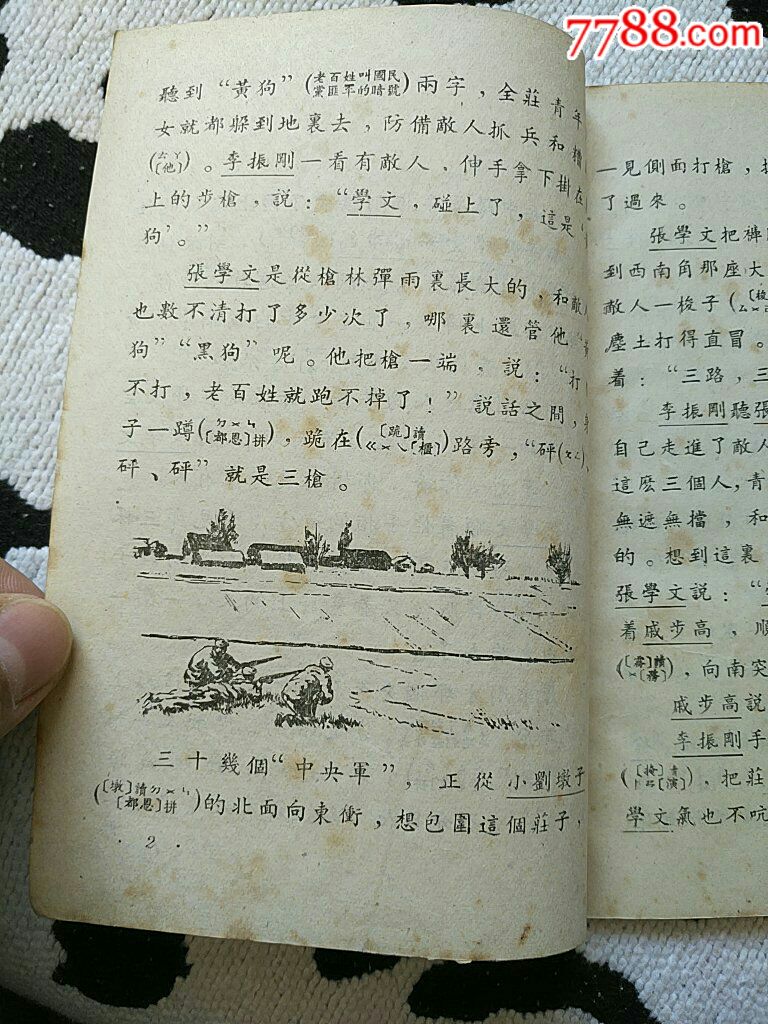 7788.com
聽到“黃狗”(老百姓叫國民黨匪軍的暗號)兩字，全莊青年
女就都躲到地裏去，防備敵人抓兵和糟
(ㄊㄚ[他])。李振剛一看有敵人，伸手拿下掛在
上的步槍，說：“學文，碰上了，這是‘
狗’。”
張學文是從槍林彈雨裏長大的，和敵
也數不清打了多少次了，哪裏還管他“
狗”“黑狗”呢。他把槍一端，說：“打！
不打，老百姓就跑不掉了！”說話之間，
子一蹲(ㄉㄨㄣ[都恩]拼)，跪在([跪]讀ㄍㄨㄟ[櫃])路旁，“砰(ㄆㄥ)、
砰、砰”就是三槍。
三十幾個“中央軍”，正從小劉墩子
([墩]讀ㄉㄨㄣ[都恩]拼)的北面向東衝，想包圍這個莊子，
· 2 ·
一見側面打槍，
了過來。
張學文把褲
到西南角那座大
敵人一梭子([梭]
塵土打得直冒。
着：“三路，三
李振剛聽張
自己走進了敵人
這麽三個人，青
無遮無擋，和
的。想到這裏
張學文說：“
着戚步高，順
([霧]讀ㄨ[務])，向南突
戚步高說
李振剛手
把莊
學文氣也不吭